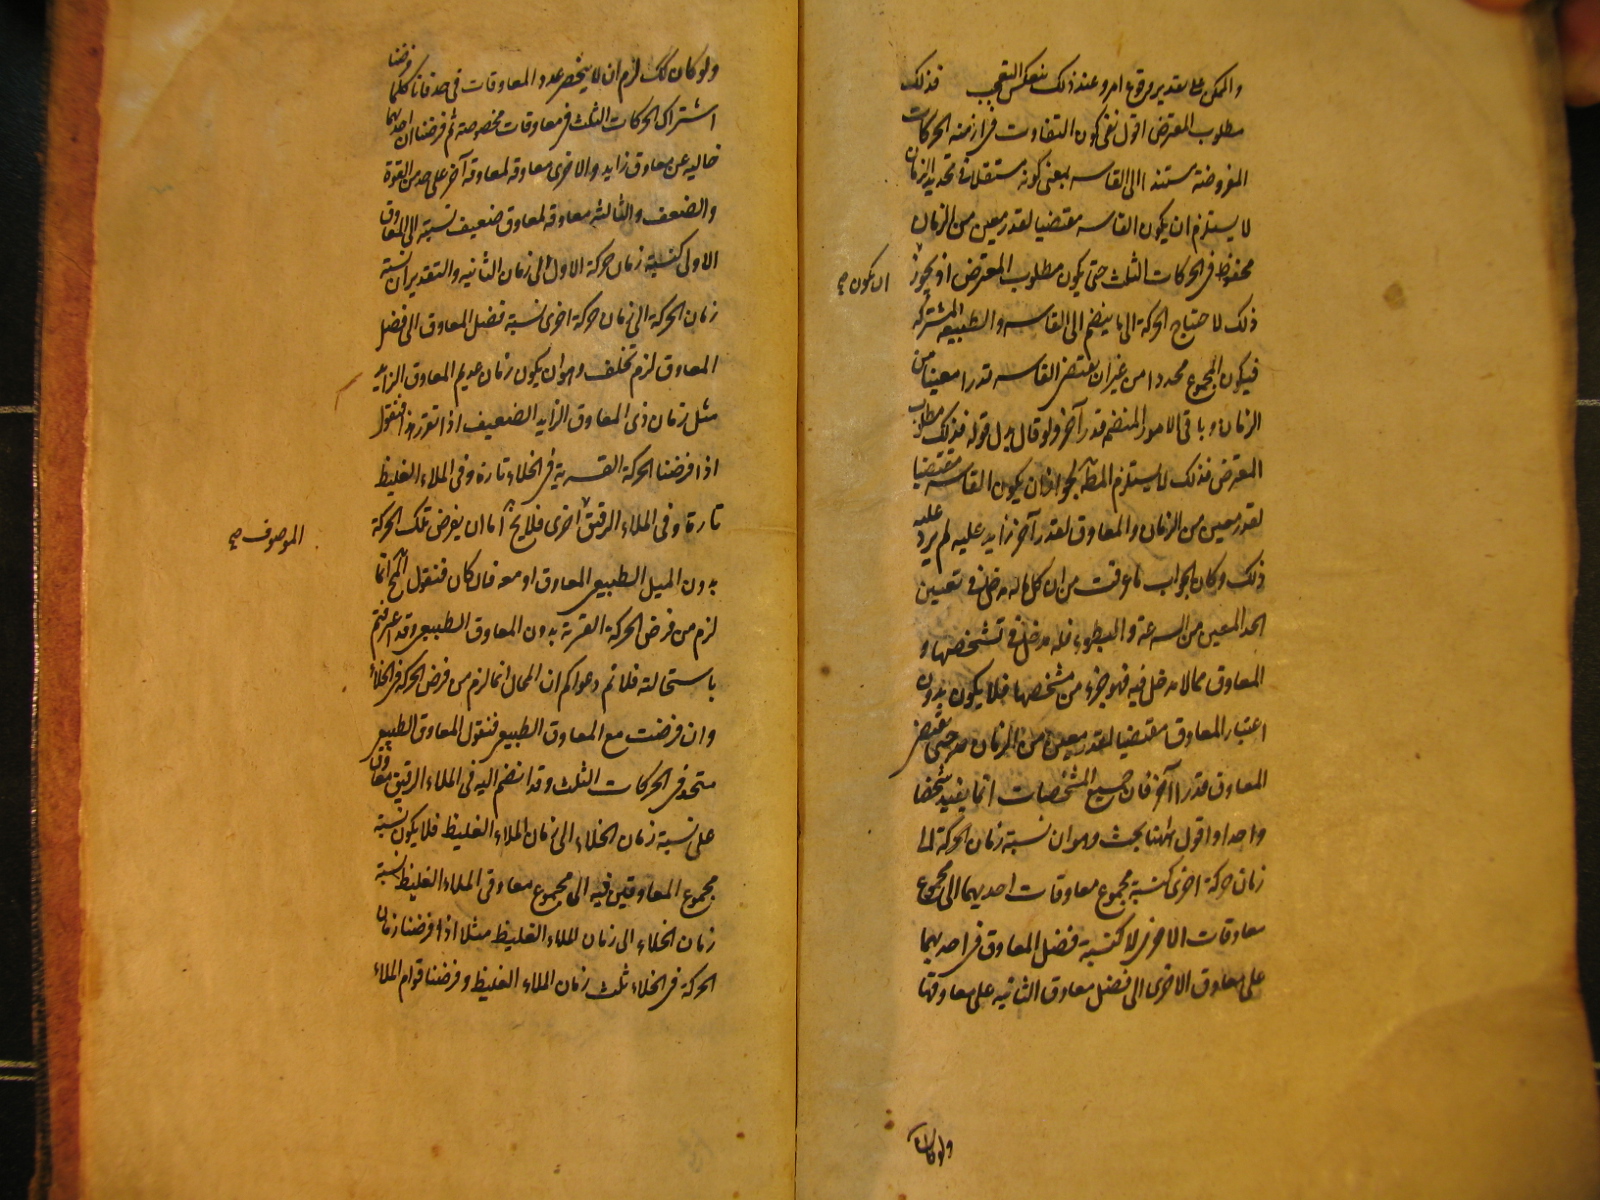 والممكن على تقدير وقوع امر وعند ذلك ينعكس التعجب فذلك
مطلوب المعترض اقول نفى كون التفاوت فى ازمنة الحركات
المفروضة مستندا الى القاسر بمعنى كونه مستقلا فى تحديد الزمان
لا يستلزم ان يكون القاسر مقتضيا لقدر معين من الزمان
محفوظ فى الحركات الثلث حتى يكون مطلوب المعترض اذ يجوز
ان يكون صح
ذلك لاحتياج الحركة الى ما ينضم الى القاسر والطبيعة المشتركة
فيكون المجموع محددا من غير ان يقتضى القاسر قدرا معينا من
الزمان وباقى الامور المنضمة قدر آخر ولو قال بدل قوله فذلك مطلوب
المعترض فذلك لا يستلزم المط لجواز ان يكون القاسر مقتضيا
لقدر معين من الزمان والمعاوق لقدر آخر زايد عليه لم يرد عليه
ذلك وكان الجواب ما عرفت من ان كل ما له مدخل فى تعيين
الحد المعين من السرعة والبطوء فله مدخل فى تشخصها و
المعاوق مما لا مدخل فيه فهو جزء من مشخصها فلا يكون بدون
اعتبار المعاوق مقتضيا لقدر معين من الزمان حتى يقتضى
المعاوق قدرا آخر فان جميع المشخصات انما يفيد تشخصا
واحدا واقول ههنا بحث وهو ان نسبة زمان الحركة الى
زمان حركة اخرى كنسبة مجموع معاوقات احديهما الى مجموع
معاوقات الاخرى لا كنسبة فضل المعاوق فى احديهما
على معاوق الاخرى الى فضل معاوق الثانية على معاوقتها
ولو كان
ولو كان كك لزم ان لا ينحصر عدد المعاوقات فى حد فانا كلما فرضنا
اشتراك الحركات الثلث فى معاوقات مخصوصة ثم فرضنا ان احديهما
خالية عن معاوق زايد والاخرى معاوقة لمعاوقة آخر على حد من القوة
والضعف والثالثة معاوقة لمعاوق ضعيف نسبته الى المعاوق
الاول كنسبة زمان حركة الاولى الى زمان الثانية والتقدير ان نسبة
زمان الحركة الى زمان حركة اخرى نسبة فضل المعاوق الى فضل
المعاوق لزم تخلف وهو ان يكون زمان عديم المعاوق الزايد
مثل زمان ذى المعاوق الزايد الضعيف اذا تقرر هذا فنقول
اذا فرضنا الحركة القسرية فى الخلاء تارة وفى الملاء الغليظ
تارة وفى الملاء الرقيق اخرى فلا يخ اما ان يفرض تلك الحركة
الموصوف صح
بدون الميل الطبيعى المعاوق او معه فان كان فنقول المح انما
لزم من فرض الحركة القسرية بدون المعاوق الطبيعى وقد اعترفتم
باستحالته فلا تم دعواكم ان المحال انما لزم من فرض الحركة فى الخلاء
وان فرضت مع المعاوق الطبيعى فنقول المعاوق الطبيعى
متحد فى الحركات الثلث وقد انضم اليه فى الملاء الرقيق معاوق
على نسبة زمان الخلاء الى زمان الملاء الغليظ فلا يكون نسبة
مجموع المعاوقتين فيه الى مجموع معاوقى الملاء الغليظ نسبة
زمان الخلاء الى زمان الملاء الغليظ مثلا اذا فرضنا زمان
الحركة فى الخلاء ثلث زمان الملاء الغليظ وفرضنا قوام الملاء